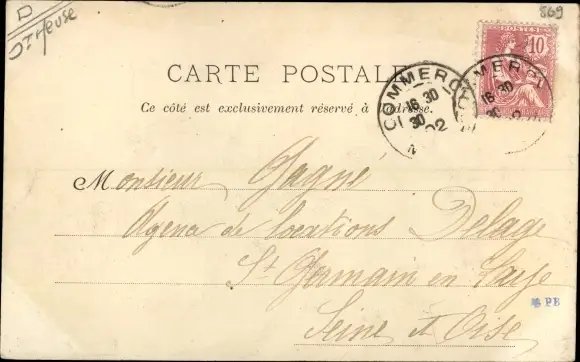 D
869
POSTES
10
CARTE POSTALE
Ce côté est exclusivement réservé à l'adresse.
COMMERCY
16 30
30
02
16 30
30
Monsieur Gagné
Agence de locations Delage
St Germain en Laye
Seine et Oise
PB